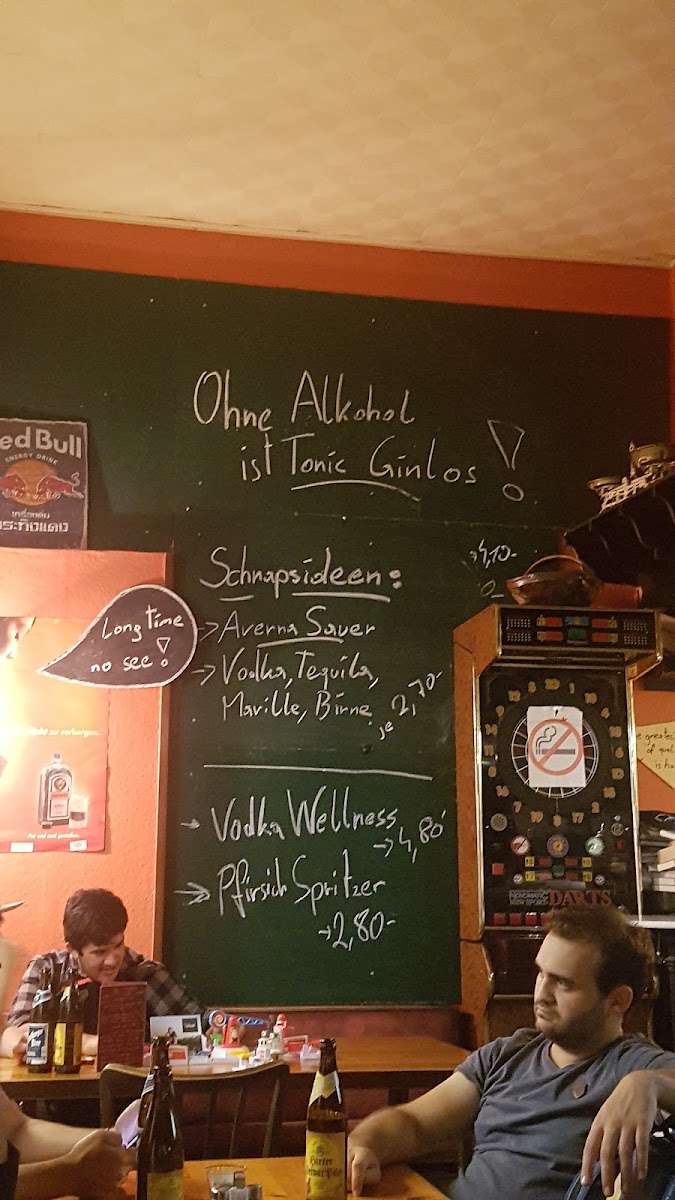 Ohne Alkohol
ist Tonic Ginlos !
ed Bull
ENERGY DRINK
เครื่องดื่ม
กระทิงแดง
Schnapsideen:
→4,10-
Long time
no see!
→ Averna Sauer
→ Vodka, Tequila,
Marille, Birne, je 2,70-
→ Vodka Wellness
→ 4,80
→ Pfirsich Spritzer
→ 2,80-
NOVOMATIC
NEW SPORT
DARTS